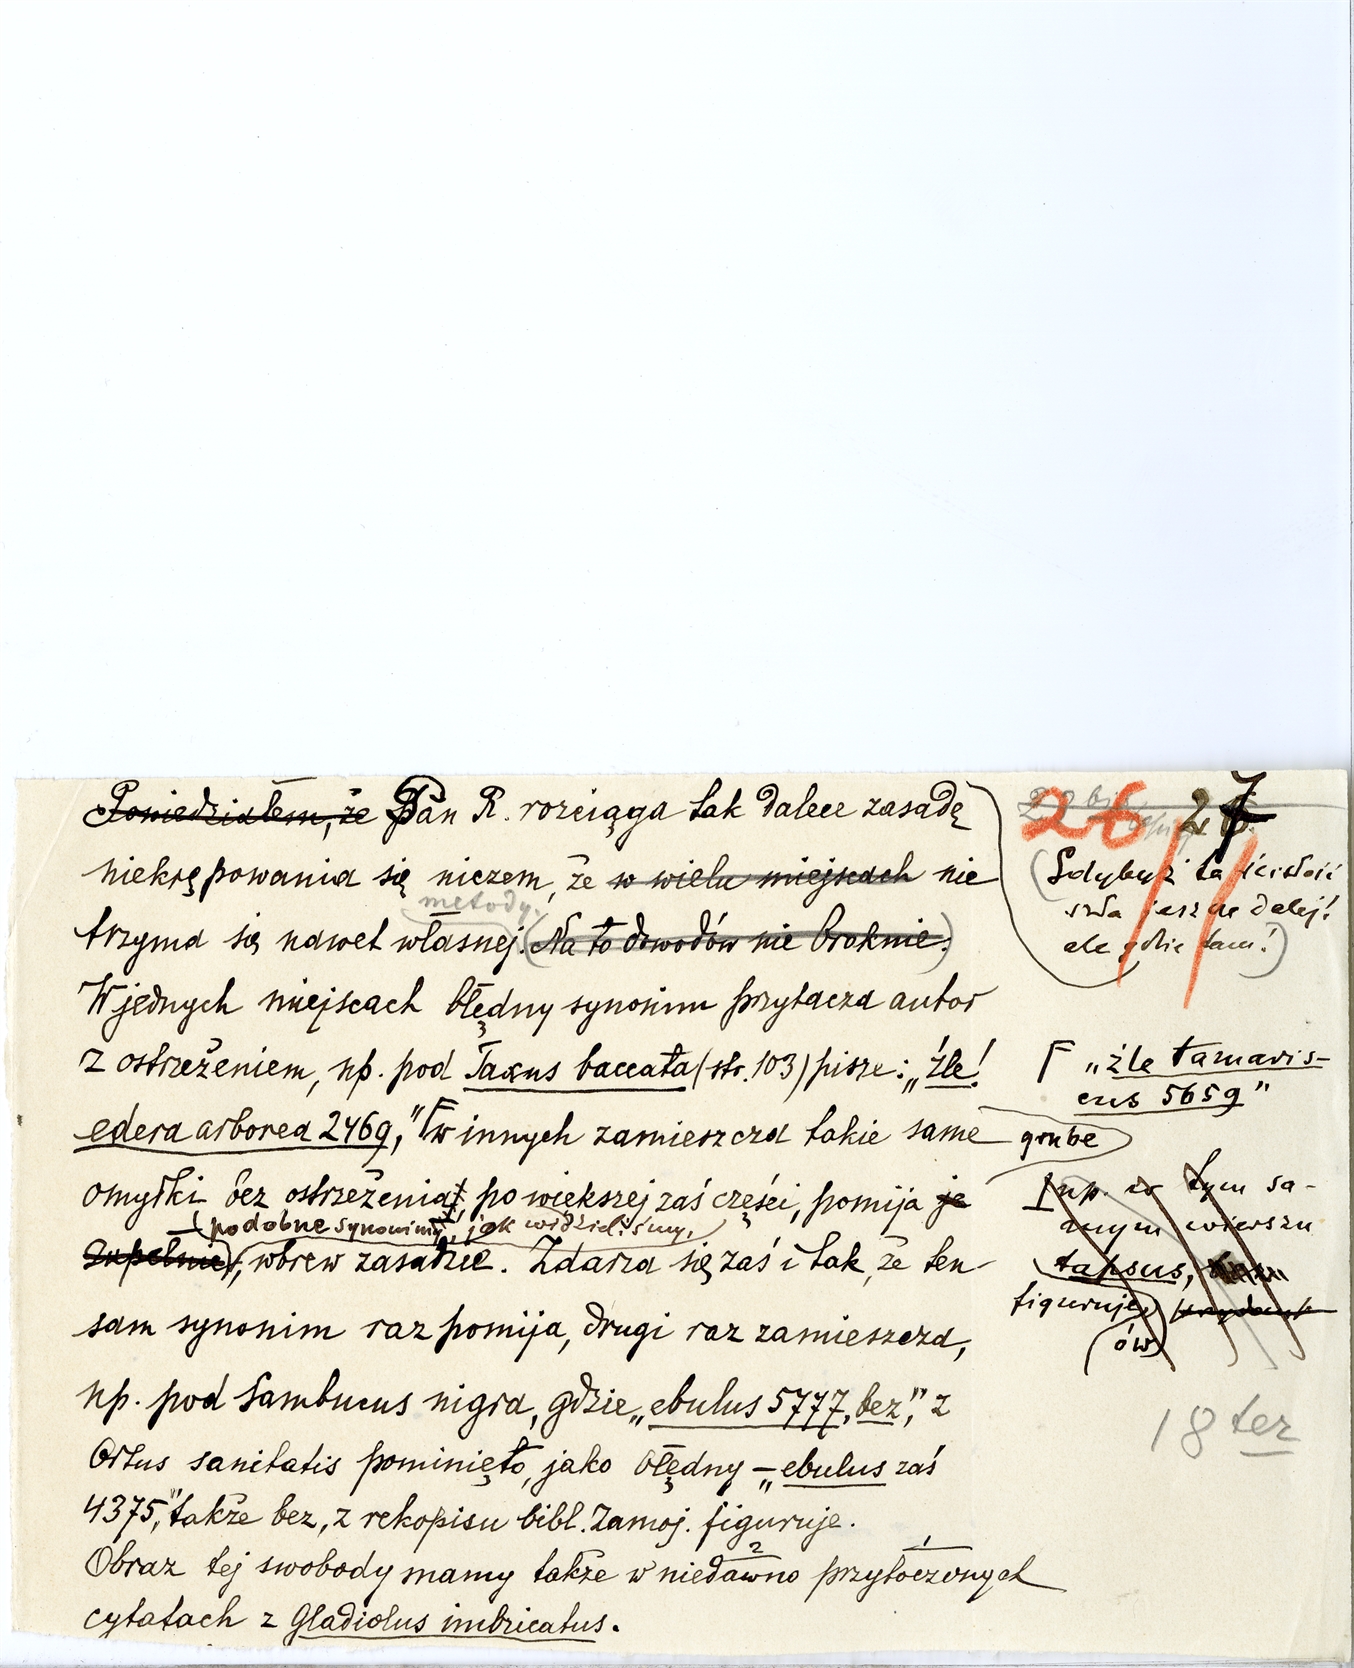 Powiedziałem, że Pan R. rozciąga tak dalece zasadę
niekrępowania się niczem, że w wielu miejscach nie
metody.
trzyma się nawet własnej. (Na to dowodów nie braknie.)
W jednych miejscach błędny synonim przytacza autor
z ostrzeżeniem, np. pod Taxus baccata (str. 103) pisze: „źle!
edera arborea 2469," w innych zamieszcza takie same
omyłki bez ostrzeżenia, po większej zaś części, pomija je
(podobne synonimy, jak widzieliśmy,
zupełnie), wbrew zasadzie. Zdarza się zaś i tak, że ten
sam synonim raz pomija, drugi raz zamieszcza,
np. pod Sambucus nigra, gdzie „ebulus 5777, bez", z
Ortus sanitatis pominięto, jako błędny – „ebulus zaś
4375," także bez, z rękopisu bibl. Zamoj. figuruje.
2 1
Obraz tej swobody mamy także w niedawno przytoczonych
cytatach z Gladiolus imbricatus.
26 27
(Gdybyż ta ścisłość
szła jeszcze dalej!
ale gdzie tam!)
Γ „źle tamaris-
cus 5659"
grube
np. w tym sa-
mym wierszu
tapsus,
figuruje
(ów)
18 ter